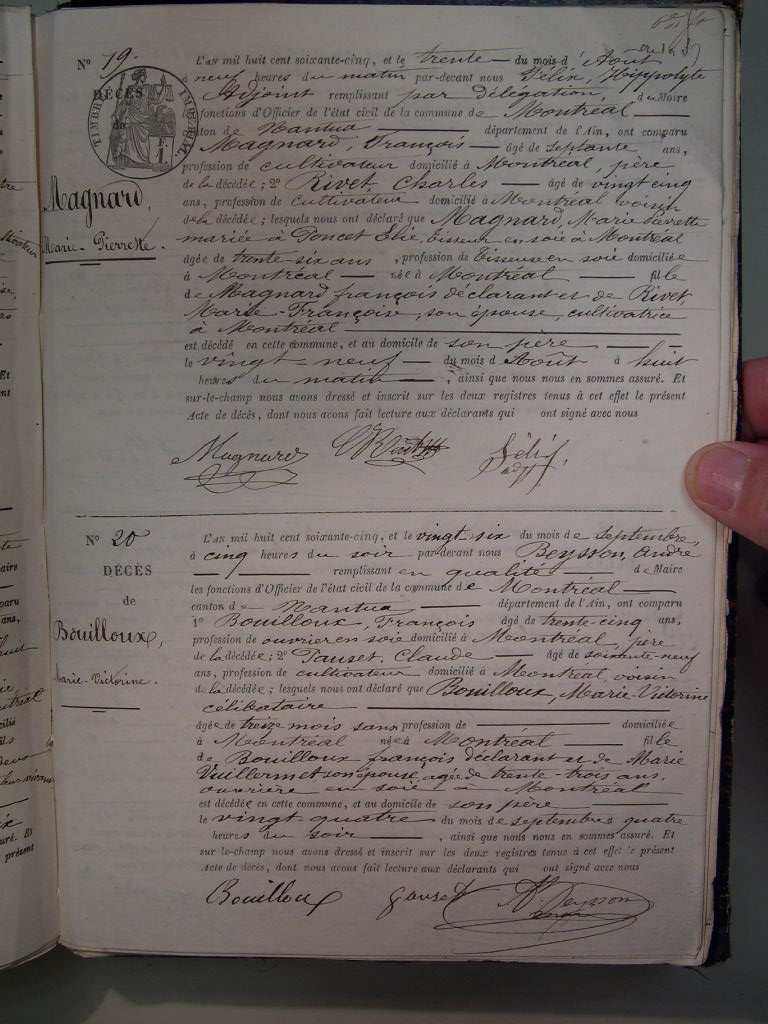 N° 19.
DÉCÈS
de
Magnard,
Marie-Pierrette.
TIMBRE IMPERIAL
L'AN mil huit cent soixante-cinq, et le trente du mois d'Août
à neuf heures du matin par-devant nous Félix, Hippolyte
Adjoint remplissant par délégation, du Maire
fonctions d'Officier de l'état civil de la commune de Montréal
canton de Nantua département de l'Ain, ont comparu
Magnard, François âgé de septante ans,
profession de cultivateur domicilié à Montréal, père
de la décédée ; 2° Rivet, Charles âgé de vingt cinq
ans, profession de cultivateur domicilié à Montréal voisin
de la décédée ; lesquels nous ont déclaré que Magnard, Marie Pierrette
mariée à Poncet Elie, tisseur en soie à Montréal
âgée de trente-six ans, profession de tisseuse en soie domiciliée
à Montréal née à Montréal fille
de Magnard françois déclarant et de Rivet,
Marie-Françoise, son épouse, cultivatrice
à Montréal
est décédé en cette commune, et au domicile de son père
le vingt-neuf du mois d'Août à huit
heures du matin, ainsi que nous nous en sommes assuré. Et
sur-le-champ nous avons dressé et inscrit sur les deux registres tenus à cet effet le présent
Acte de décès, dont nous avons fait lecture aux déclarants qui ont signé avec nous
Magnard Rivet Félix,
adjt
N° 20
DÉCÈS
de
Bouilloux,
Marie-Victorine.
L'AN mil huit cent soixante-cinq, et le vingt six du mois de septembre,
à cinq heures du soir par-devant nous Beysson, André
remplissant en qualité de Maire
les fonctions d'Officier de l'état civil de la commune de Montréal
canton de Nantua département de l'Ain, ont comparu
1° Bouilloux, François âgé de trente-cinq ans,
profession de ouvrier en soie domicilié à Montréal, père
de la décédée ; 2° Tauset, Claude âgé de soixante-neuf
ans, profession de cultivateur domicilié à Montréal, voisin
de la décédée ; lesquels nous ont déclaré que Bouilloux, Marie-Victorine
célibataire
âgée de treize mois sans profession de domiciliée
à Montréal née à Montréal fille
de Bouilloux françois déclarant et de Marie
Vuillermet son épouse, agée de trente-trois ans,
ouvrière en soie à Montréal
est décédée en cette commune, et au domicile de son père
le vingt-quatre du mois de septembre à quatre
heures du soir, ainsi que nous nous en sommes assuré. Et
sur le-champ nous avons dressé et inscrit sur les deux registres tenus à cet effet le présent
Acte de décès, dont nous avons fait lecture aux déclarants qui ont signé avec nous
Bouilloux Beysson